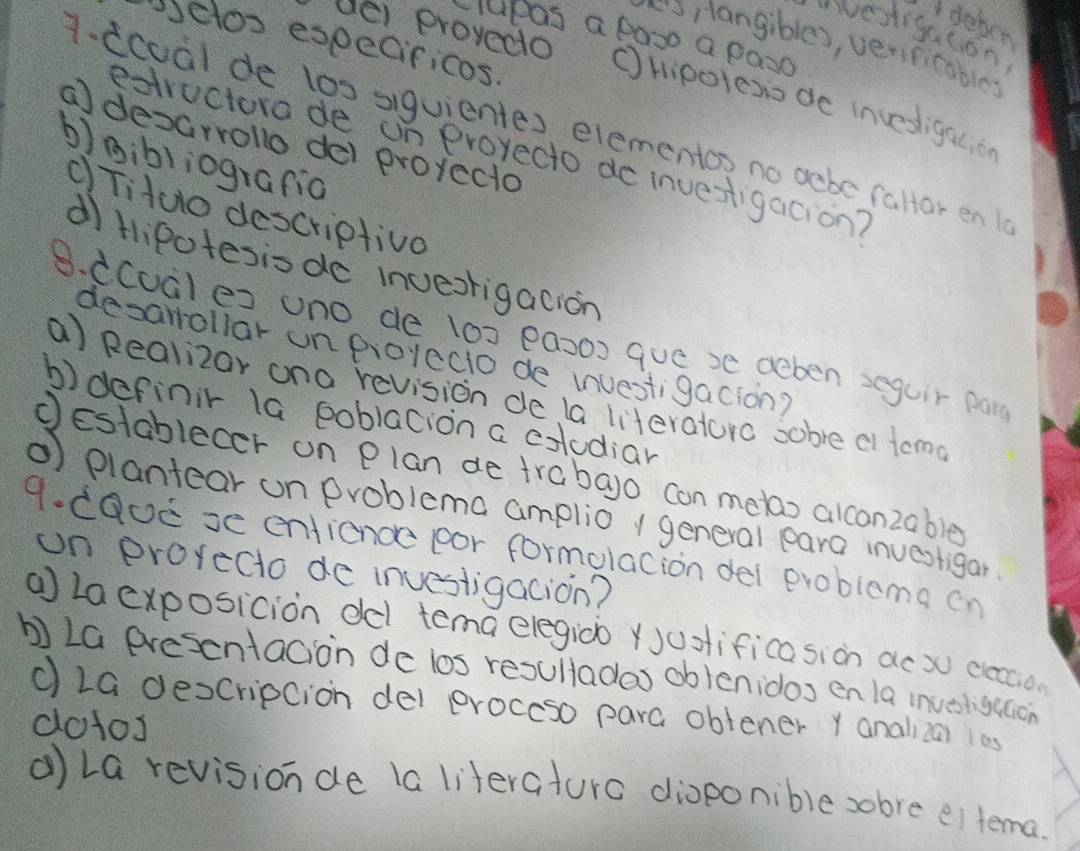 investigación,
tangibles, verificables
a paso a paso
del proyecto c) Hipotesis de investigación
especificos.
7. ¿cuál de los siguientes elementos no debe faltar en la
estructura de un proyecto de investigación?
a) desarrollo del proyecto
b) Bibliografia
c) Titulo descriptivo
d) Hipotesis de investigación
8. ¿cuál es uno de los pasos que se deben seguir para
desarrollar un proyecto de investigación?
a) Realizar una revisión de la literatura sobre el tema
b) definir la población a estudiar
c) Establecer un plan de trabajo con metas alcanzables
d) plantear un problema amplio y general para investigar.
9. ¿Qué se entiende por formulación del problema en
un proyecto de investigación?
a) La exposición del tema elegido y justificasión de su elección
b) La presentación de los resultados obtenidos en la investigación
c) La descripción del proceso para obtener y analizar los
datos
d) La revisión de la literatura disponible sobre el tema.